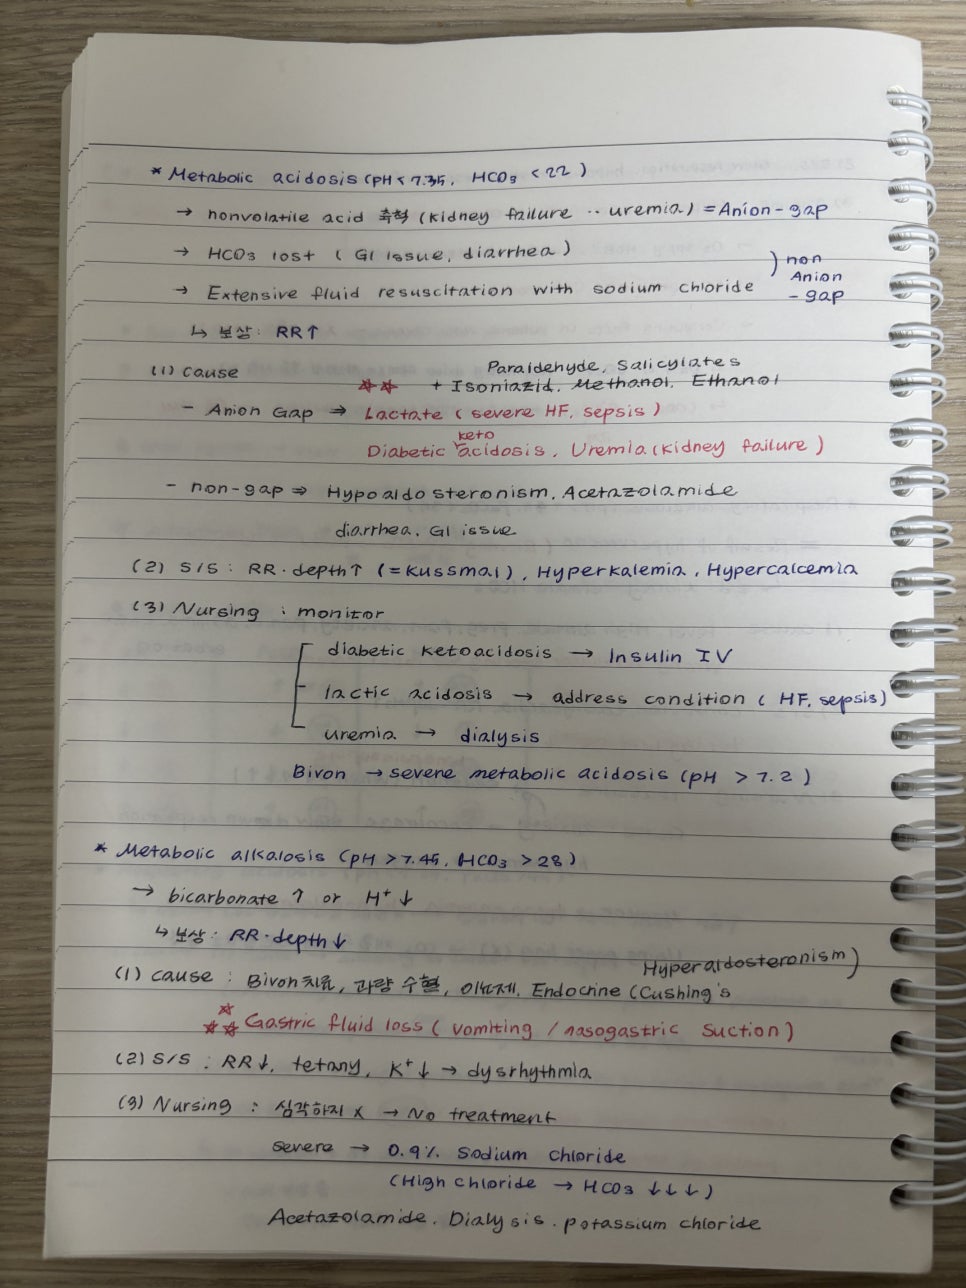 * Metabolic acidosis (pH < 7.35, HCO3 < 22)
→ nonvolatile acid 축적 (kidney failure ·· uremia) = Anion-gap
→ HCO3 lost ( GI issue, diarrhea )
→ Extensive fluid resuscitation with sodium chloride ) non Anion - gap
↳ 보상: RR↑
(1) cause
Paraldehyde, Salicylates
☆☆ + Isoniazid, Methanol, Ethanol
- Anion Gap ⇒ Lactate ( severe HF, sepsis )
Diabetic keto acidosis, Uremia (kidney failure )
- non-gap ⇒ Hypoaldosteronism, Acetazolamide
diarrhea, GI issue
(2) S/S : RR·depth↑ (= Kussmal), Hyperkalemia, Hypercalcemia
(3) Nursing : monitor
diabetic ketoacidosis → Insulin IV
lactic acidosis → address condition ( HF, sepsis)
uremia → dialysis
Bivon → severe metabolic acidosis (pH > 7.2 )
* Metabolic alkalosis (pH > 7.45, HCO3 > 28)
→ bicarbonate ↑ or H+ ↓
↳ 보상: RR·depth↓
(1) cause : Bivon치료, 과량 수혈, 이뇨제, Endocrine (Cushing's Hyperaldosteronism)
☆☆☆ Gastric fluid loss ( vomiting / nasogastric suction )
(2) S/S : RR↓, tetany, K+↓ → dysrhythmia
(3) Nursing : 심각하지 X → No treatment
severe → 0.9% Sodium chloride
(High chloride → HCO3 ↓↓↓)
Acetazolamide. Dialysis. potassium chloride